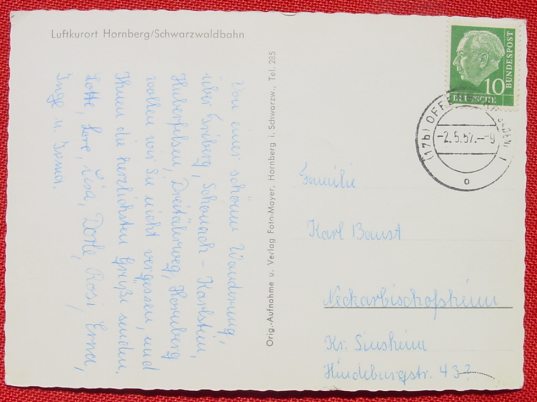 Luftkurort Hornberg/Schwarzwaldbahn
Von einer schönen Wanderung,
über Triberg, Schonach - Karlstein,
Huberfelsen, Hornberg
wollen wir Sie nicht vergessen, und
Ihnen die herzlichsten Grüße senden,
Lotte, Lore, Lisa, Dorle, Rosi, Erna,
Inge u. Irma.
Orig.-Aufnahme u. Verlag Foto-Mayer, Hornberg i. Schwarzw., Tel. 285
10
DEUTSCHE
BUNDESPOST
(17b) OFF
-2.5.57.-9
Familie
Karl Banst
Neckarbischofsheim
Kr. Sinsheim
Hindeburgstr. 43?